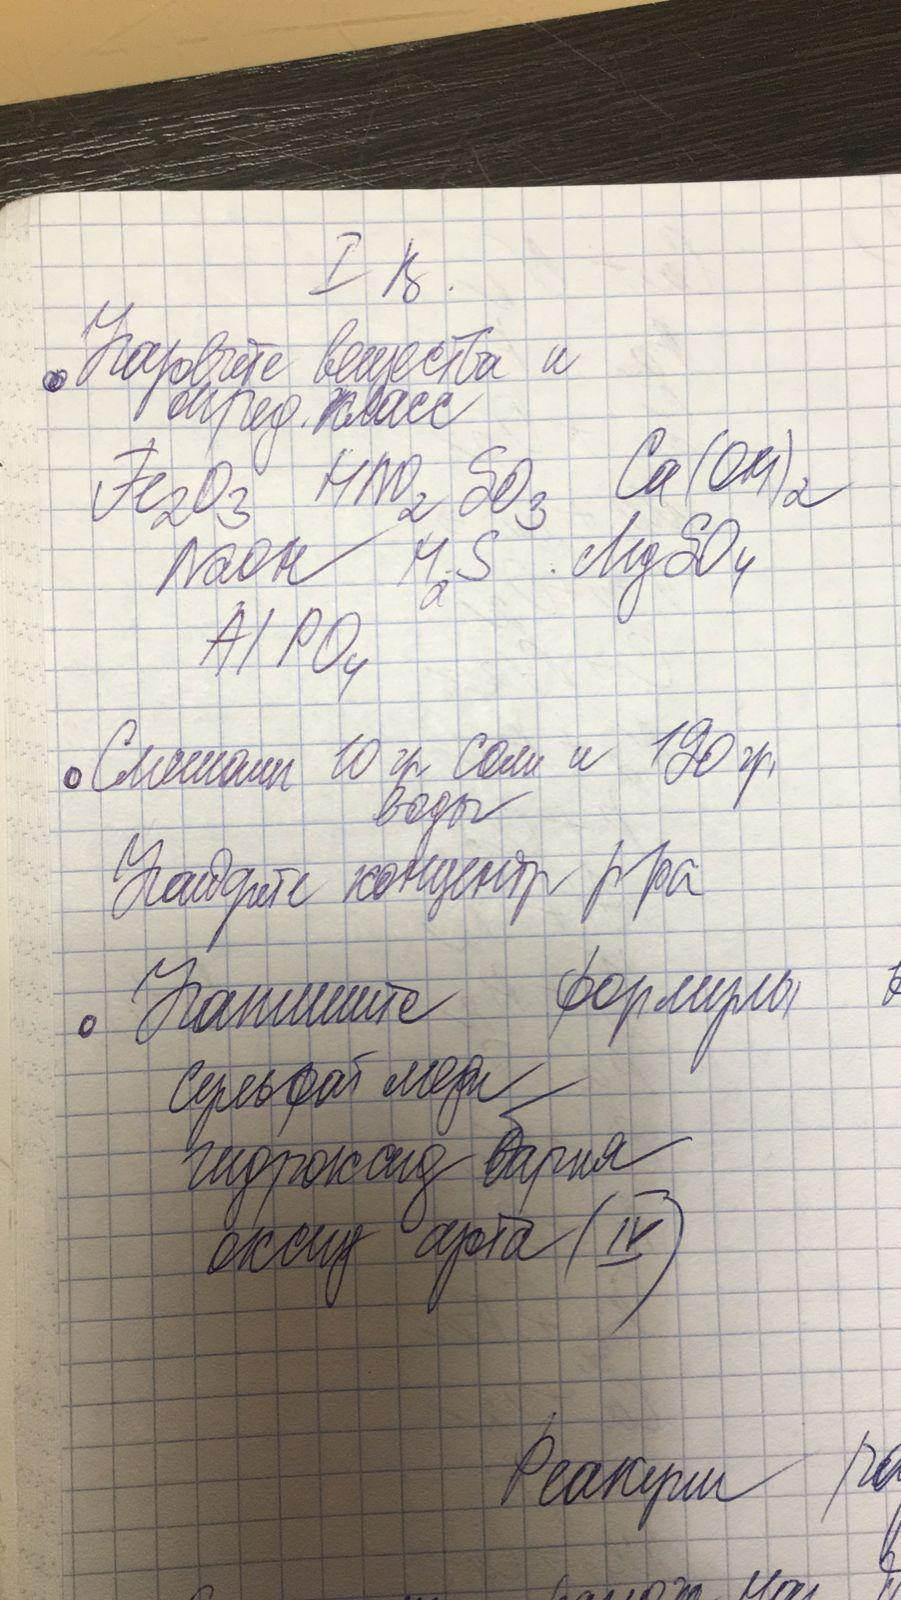 I В.
Назовите вещества и
опред. класс
Fe2O3 HNO2 SO3 Ca(OH)2
NaOH H2S MgSO4
AlPO4
Смешали 10 гр соли и 190 гр.
воды
Найдите концентр р-ра
Напишите формулы
сульфат меди
гидроксид бария
оксид азота (IV)
Реакции